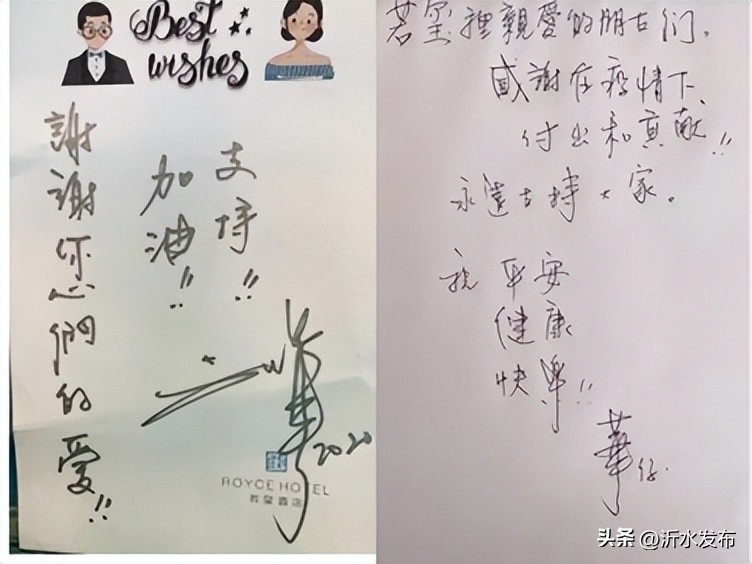 Best
wishes
謝謝您們的愛!!
加油!!
支持!!
華
2020
ROYCE HOTEL
若玺酒店
若玺裡親愛的朋友们。
感謝在疫情下
付出和貢献!!
永遠支持大家。
祝 平安
健康
快樂!!
華仔
头条 @沂水发布